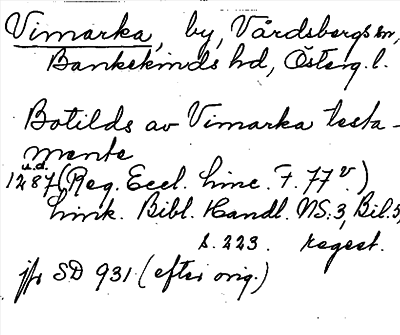 Vimarka, by, Vårdsbergs sn,
Bankekinds hd, Österg. l.
Botilds av Vimarka testa-
mente
u.d.
1287 (Reg. Eccl. Linc. F. 77 v.)
Link. Bibl. Handl. NS: 3, Bil. 5,
s. 223. regest.
jfr SD 931 (efter orig.)